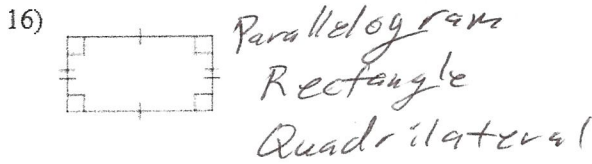 16)
Parallelogram
Rectangle
Quadrilateral